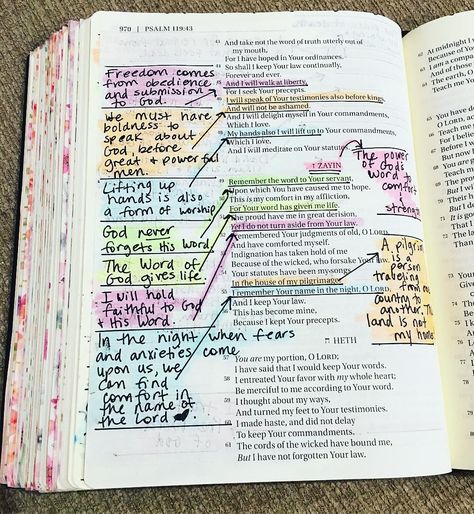 970 | PSALM 119:43
43 And take not the word of truth utterly out of
my mouth,
For I have hoped in Your ordinances.
44 So shall I keep Your law continually,
Forever and ever.
45 And I will walk at liberty,
For I seek Your precepts.
46 I will speak of Your testimonies also before kings,
And will not be ashamed.
47 And I will delight myself in Your commandments,
Which I love.
48 My hands also I will lift up to Your commandments,
Which I love,
And I will meditate on Your statutes.
ז ZAYIN
49 Remember the word to Your servant,
Upon which You have caused me to hope.
50 This is my comfort in my affliction,
For Your word has given me life.
51 The proud have me in great derision,
Yet I do not turn aside from Your law.
52 I remembered Your judgments of old, O LORD,
And have comforted myself.
53 Indignation has taken hold of me
Because of the wicked, who forsake Your law.
54 Your statutes have been my songs
In the house of my pilgrimage.
55 I remember Your name in the night, O LORD,
And I keep Your law.
56 This has become mine,
Because I kept Your precepts.
ח HETH
57 You are my portion, O LORD;
I have said that I would keep Your words.
58 I entreated Your favor with my whole heart;
Be merciful to me according to Your word.
59 I thought about my ways,
And turned my feet to Your testimonies.
60 I made haste, and did not delay
To keep Your commandments.
61 The cords of the wicked have bound me,
But I have not forgotten Your law.
Freedom comes
from obedience
and submission
to God.
We must have
boldness to
speak about
God before
great & powerful
men.
Lifting up
hands is also
a form of worship
God never
forgets His word.
The Word of
God gives life.
I will hold
faithful to God
& His Word.
In the night when fears
and anxieties come
upon us, we
can find
comfort in
the name of
the Lord
The power
of God's
word to
comfort
&
strength
A pilgrim
is a
person
traveling
from one
country to
another. The
land is not
my home
At midnight I